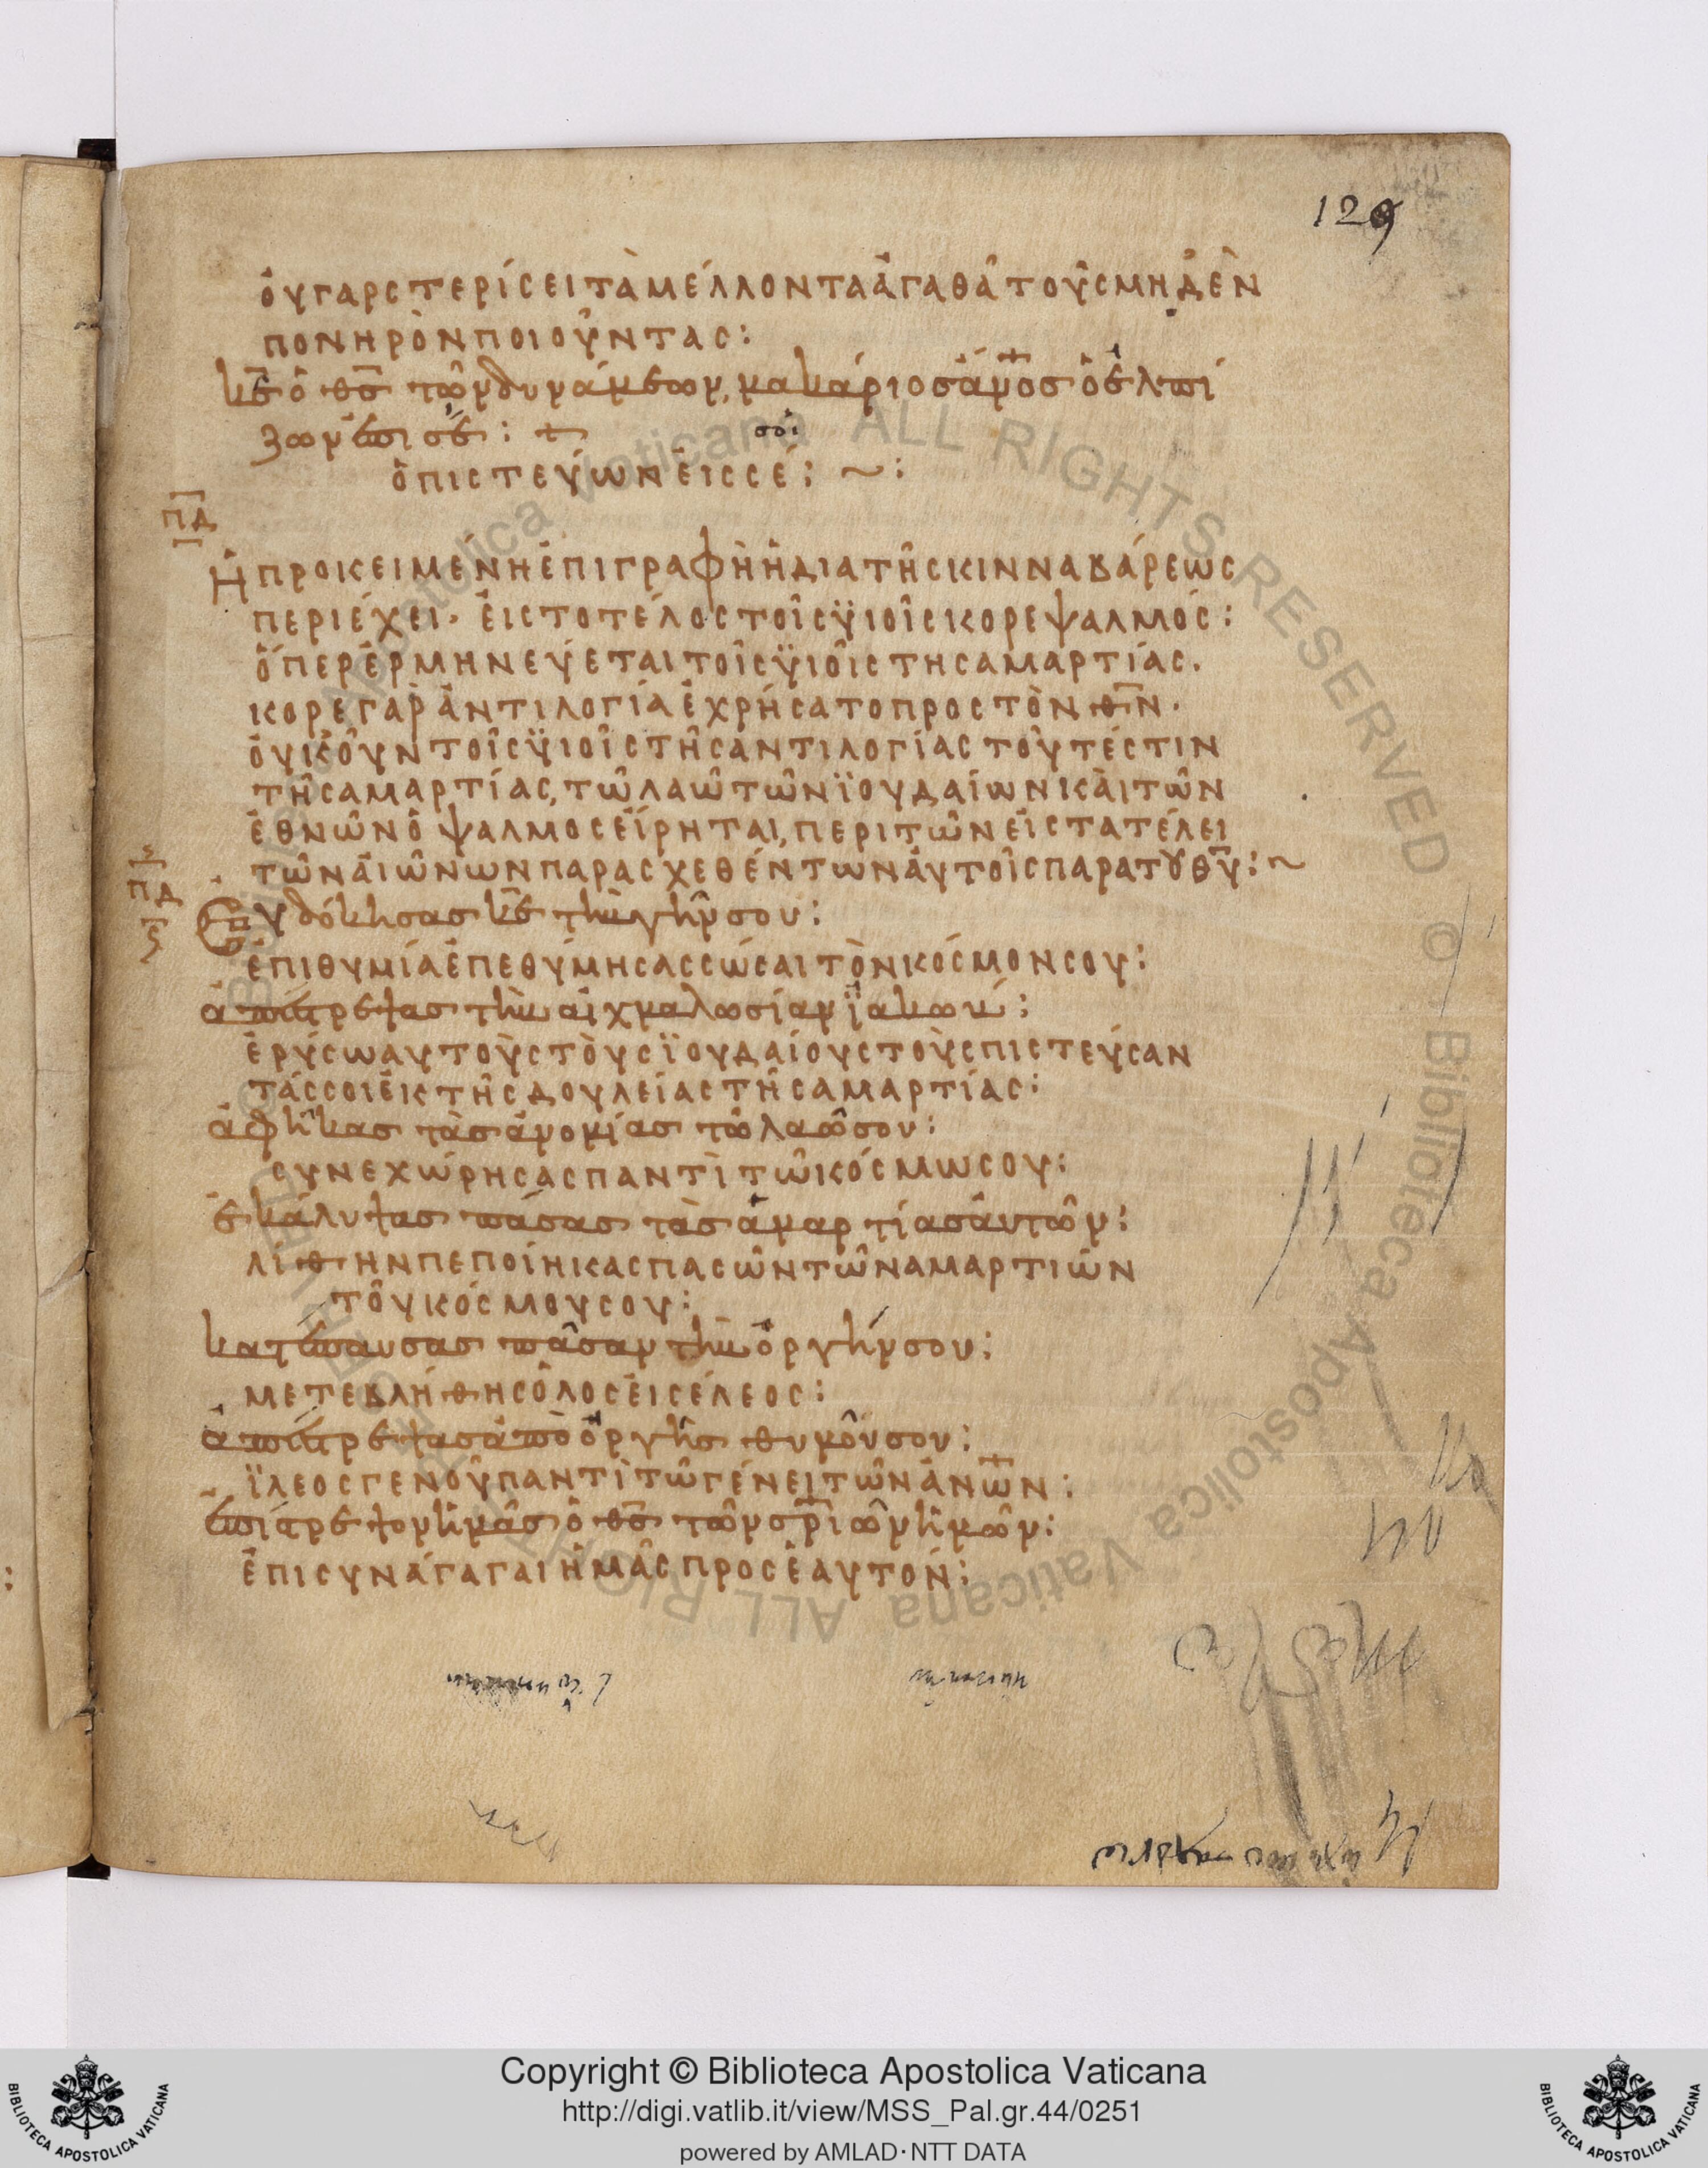 129
ὁυ γαρ στερίσει τὰ μέλλοντα ἀγαθὰ τοὺς μηδὲν
πονηρὸν ποιοῦντας:
κ̅ε̅ ὁ θ̅ς̅ τῶν δυνάμεων, μακάριος ἄν̅ο̅ς ὁ ἐλπί
ζων ἐπι σέ: +
σοὶ
ὁ πιστεύων ἐις σέ: ~:
πδ
Ἡ προκειμένη ἐπιγραφὴ ἡ δια τῆς κινναβάρεως
περιέχει· ἐις το τέλος τοῖς ϋιοῖς κορε ψαλμός:
ὅπερ ἑρμηνεύεται τοῖς ϋιοῖς της αμαρτίας.
κορε γαρ ἀντιλογία ἐχρήσατο προς τὸν θ̅ν̅.
ὀυκοῦν τοῖς ϋιοῖς τῆς αντιλογίας τοῦτέστιν
τῆς αμαρτίας, τῶ λαῶ τῶν ϊουδαίων κὰι τῶν
ἐθνῶν ὁ ψαλμος εἴρηται, περι τῶν εἰς τα τέλει
τῶν ἀιῶνων παρασχεθέντων ἀυτοῖς παρα τȣ θ̅υ̅:~
πδ
Ευδόκησας κ̅ε̅ τὴν γῆν σου:
ἐπιθυμία ἐπεθύμησας σώσαι τὸν κόσμον σου:
ἀπέστρεψας τὴν αἰχμαλωσίαν ϊακωβ:
ἐρύσω αυτοὺς τὸυς ϊουδαίους τοὺς πιστεύσαν
τάς σοι ἐκ τῆς δουλείας τῆς αμαρτίας:
ἀφῆκας τὰς ἀνομίας τῶ λαῶ σου:
συνεχώρησας παντὶ τῶ κόσμω σου:
ἐκάλυψας πάσας τὰς ἁμαρτίας ἀυτῶν:
λιθην πεποίηκας πασῶν τῶν αμαρτιῶν
τοῦ κόσμου σου:
κατέπαυσας πᾶσαν τὴν ὀργήν σου:
μετεβλήθης ὅλος ἐις έλεος:
ἀπέστρεψας ἀπὸ ὀργῆς θυμοῦ σου:
ϊλεος γενοῦ παντὶ τῶ γένει τῶν ἀν̅ω̅ν:
ἐπίστρεψον ἡμᾶς ὁ θ̅ς̅ τῶν σ̅ρ̅ιῶν ἡμῶν:
ἐπισυνάγαγαι ἡμᾶς προς ἑαυτον:
Copyright © Biblioteca Apostolica Vaticana
http://digi.vatlib.it/view/MSS_Pal.gr.44/0251
powered by AMLAD·NTT DATA